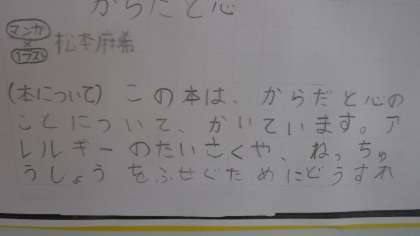 からだと心
マンガ
×
イラスト
松本麻希
(本について) この本は、からだと心の
ことについて、かいています。ア
レルギーのたいさくや、ねっちゅ
うしょうをふせぐためにどうすれ